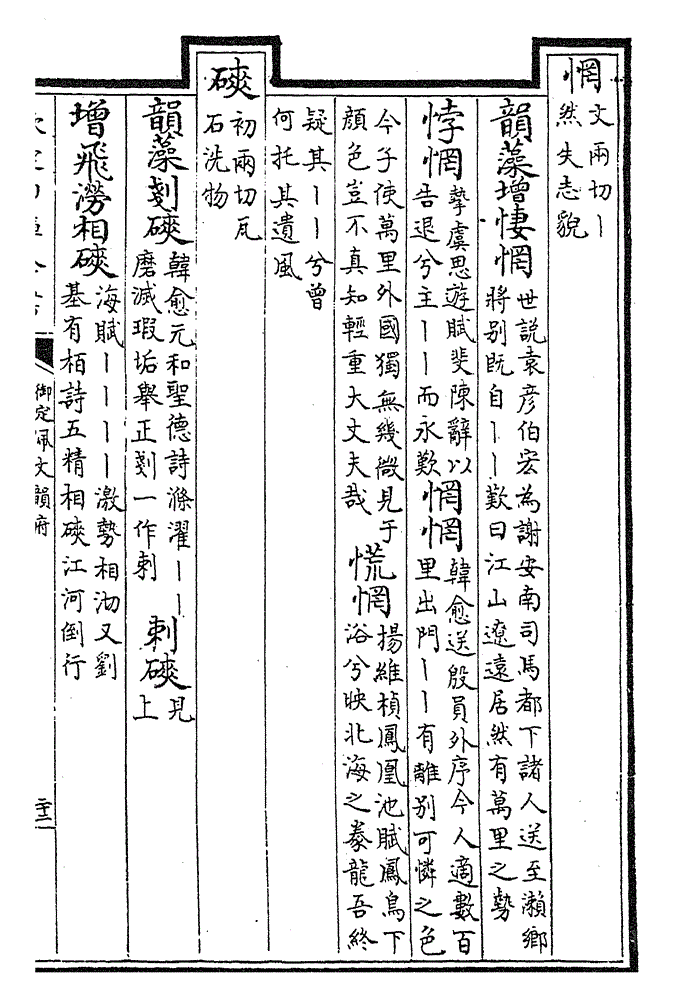 惘文兩切丨
然失志貌
韻藻增悽惘世說袁彦伯宏為謝安南司馬都下諸人送至瀨鄉
將别既自丨丨歎曰江山遼遠居然有萬里之勢
悖惘摯虞思遊賦斐陳辭以
告退兮主丨丨而永歎
惘惘韓愈送殷員外序今人適數百
里出門丨丨有離别可憐之色
今子使萬里外國獨無幾微見于
顔色豈不真知輕重大丈夫哉
慌惘揚維楨鳳凰池賦鳳鳥下
浴兮映北海之豢龍吾終
疑其丨丨兮曾
何托其遺風
磢初兩切瓦
石洗物
韻藻剗磢韓愈元和聖德詩滌濯丨丨
磨滅瑕垢舉正剗一作刺
刺磢見
上
增飛澇相磢海賦丨丨丨丨激勢相沏又劉
基有栢詩五精相磢江河倒行
御定佩文韻府